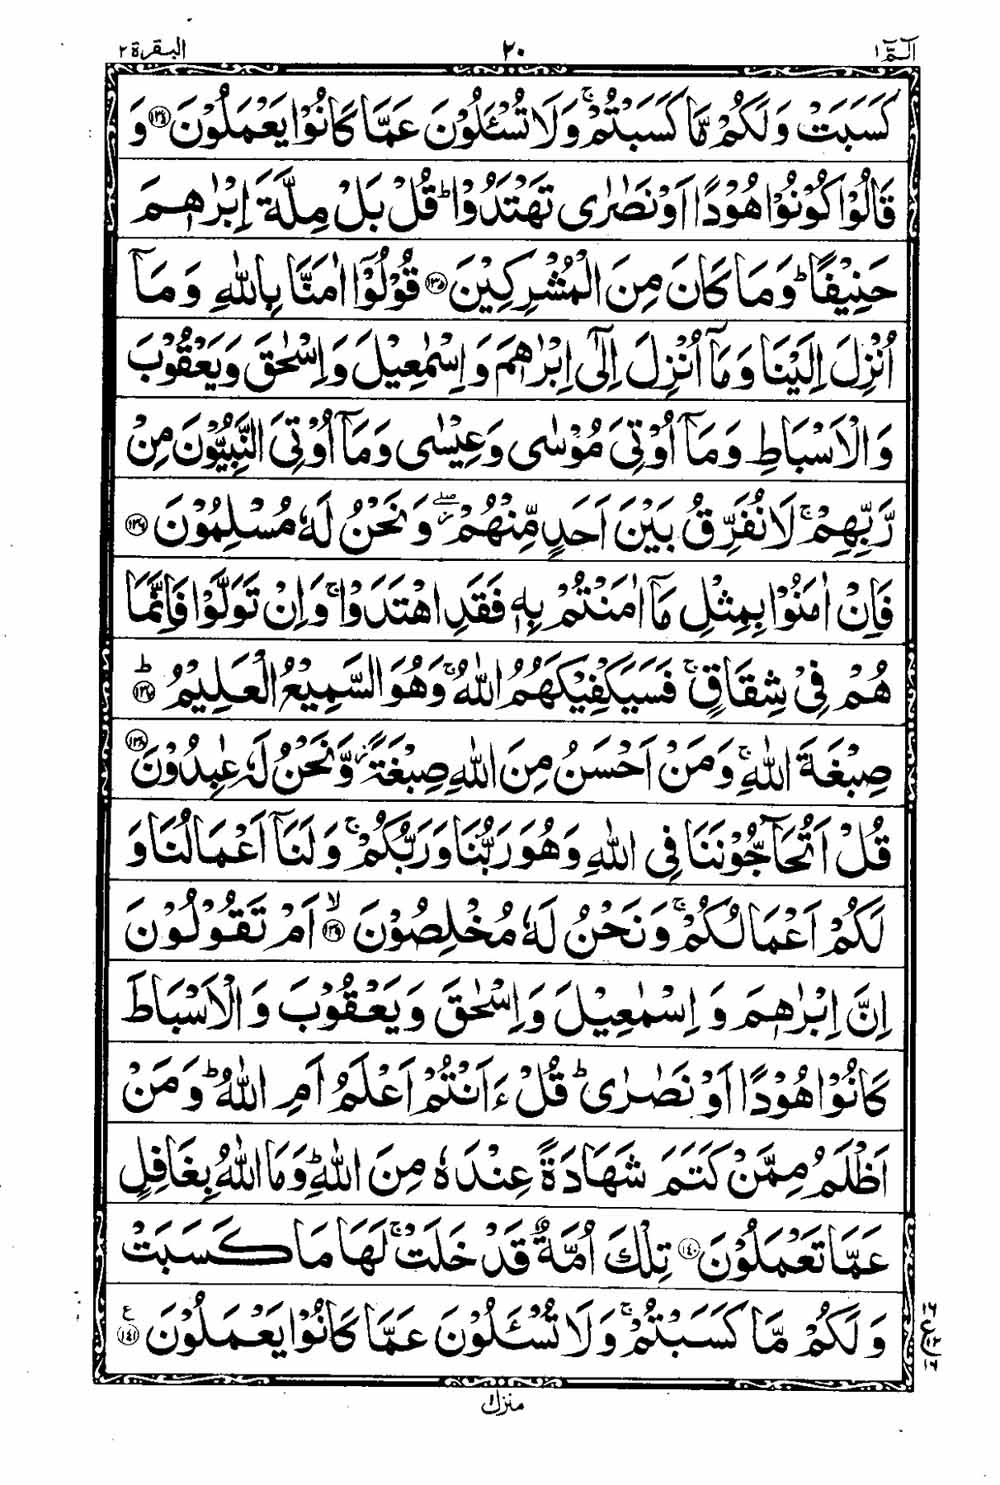 الٓمّٓ ١ ٢٠ البقرة ٢
كَسَبَتْ وَلَكُمْ مَّا كَسَبْتُمْ ۚ وَلَا تُسْـَٔلُوْنَ عَمَّا كَانُوْا يَعْمَلُوْنَ ﴿۱۳۴﴾ وَ
قَالُوْا كُوْنُوْا هُوْدًا اَوْ نَصٰرٰى تَهْتَدُوْا ؕ قُلْ بَلْ مِلَّةَ اِبْرٰهٖمَ
حَنِيْفًا ؕ وَمَا كَانَ مِنَ الْمُشْرِكِيْنَ ﴿۱۳۵﴾ قُوْلُوْۤا اٰمَنَّا بِاللّٰهِ وَمَاۤ
اُنْزِلَ اِلَيْنَا وَمَاۤ اُنْزِلَ اِلٰٓى اِبْرٰهٖمَ وَاِسْمٰعِيْلَ وَاِسْحٰقَ وَيَعْقُوْبَ
وَالْاَسْبَاطِ وَمَاۤ اُوْتِيَ مُوْسٰى وَعِيْسٰى وَمَاۤ اُوْتِيَ النَّبِيُّوْنَ مِنْ
رَّبِّهِمْ ۚ لَا نُفَرِّقُ بَيْنَ اَحَدٍ مِّنْهُمْ ۖ وَنَحْنُ لَهٗ مُسْلِمُوْنَ ﴿۱۳۶﴾
فَاِنْ اٰمَنُوْا بِمِثْلِ مَاۤ اٰمَنْتُمْ بِهٖ فَقَدِ اهْتَدَوْا ۚ وَاِنْ تَوَلَّوْا فَاِنَّمَا
هُمْ فِيْ شِقَاقٍ ۚ فَسَيَكْفِيْكَهُمُ اللّٰهُ ۚ وَهُوَ السَّمِيْعُ الْعَلِيْمُ ؕ ﴿۱۳۷﴾
صِبْغَةَ اللّٰهِ ۚ وَمَنْ اَحْسَنُ مِنَ اللّٰهِ صِبْغَةً ؗ وَّنَحْنُ لَهٗ عٰبِدُوْنَ ﴿۱۳۸﴾
قُلْ اَتُحَآجُّوْنَنَا فِي اللّٰهِ وَهُوَ رَبُّنَا وَرَبُّكُمْ ۚ وَلَنَاۤ اَعْمَالُنَا وَ
لَكُمْ اَعْمَالُكُمْ ۚ وَنَحْنُ لَهٗ مُخْلِصُوْنَ ۙ ﴿۱۳۹﴾ اَمْ تَقُوْلُوْنَ
اِنَّ اِبْرٰهٖمَ وَاِسْمٰعِيْلَ وَاِسْحٰقَ وَيَعْقُوْبَ وَالْاَسْبَاطَ
كَانُوْا هُوْدًا اَوْ نَصٰرٰى ؕ قُلْ ءَاَنْتُمْ اَعْلَمُ اَمِ اللّٰهُ ؕ وَمَنْ
اَظْلَمُ مِمَّنْ كَتَمَ شَهَادَةً عِنْدَهٗ مِنَ اللّٰهِ ؕ وَمَا اللّٰهُ بِغَافِلٍ
عَمَّا تَعْمَلُوْنَ ﴿۱۴۰﴾ تِلْكَ اُمَّةٌ قَدْ خَلَتْ ۚ لَهَا مَا كَسَبَتْ
وَلَكُمْ مَّا كَسَبْتُمْ ۚ وَلَا تُسْـَٔلُوْنَ عَمَّا كَانُوْا يَعْمَلُوْنَ ﴿۱۴۱﴾ ع
١٦
ع ١٢
١٦
منزل ١